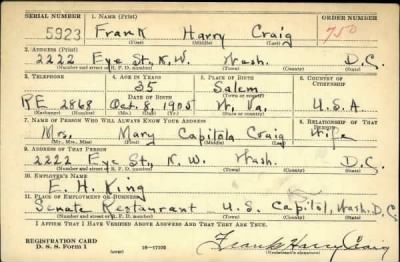 SERIAL NUMBER 1. NAME (Print) ORDER NUMBER
5923 Frank Harry Craig 750
(First) (Middle) (Last)
2. ADDRESS (Print)
2222 Eye St., N.W. Wash. D.C.
(Number and street or R. F. D. number) (Town) (County) (State)
3. TELEPHONE 4. AGE IN YEARS 5. PLACE OF BIRTH 6. COUNTRY OF CITIZENSHIP
35 Salem
DATE OF BIRTH (Town or county)
RE 2868 Oct. 8, 1905 W. Va. U.S.A.
(Exchange) (Number) (Mo.) (Day) (Yr.) (State or country)
7. NAME OF PERSON WHO WILL ALWAYS KNOW YOUR ADDRESS 8. RELATIONSHIP OF THAT PERSON
Mrs. Mary Capitola Craig Wife
(Mr., Mrs., Miss) (First) (Middle) (Last)
9. ADDRESS OF THAT PERSON
2222 Eye St., N.W. Wash. D.C.
(Number and street or R. F. D. number) (Town) (County) (State)
10. EMPLOYER'S NAME
E. H. King
11. PLACE OF EMPLOYMENT OR BUSINESS
Senate Restaurant U.S. Capitol, Wash. D.C.
(Number and street or R. F. D. number) (Town) (County) (State)
I AFFIRM THAT I HAVE VERIFIED ABOVE ANSWERS AND THAT THEY ARE TRUE.
REGISTRATION CARD
D. S. S. Form 1 (over) 16-17105 Frank Harry Craig
(Registrant's signature)